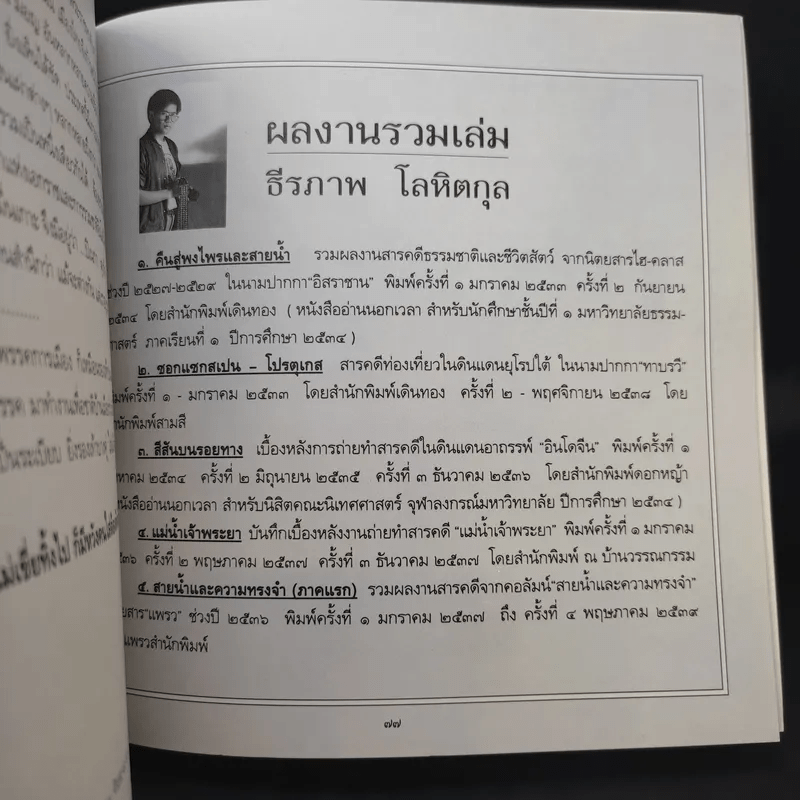 ผลงานรวมเล่ม
ธีรภาพ โลหิตกุล
๑. คืนสู่พงไพรและสายน้ำ รวมผลงานสารคดีธรรมชาติและชีวิตสัตว์ จากนิตยสารไฮ-คลาส
ช่วงปี ๒๕๒๗-๒๕๒๙ ในนามปากกา"อิสราชาน" พิมพ์ครั้งที่ ๑ มกราคม ๒๕๓๓ ครั้งที่ ๒ กันยายน
๒๕๓๔ โดยสำนักพิมพ์เดินทอง ( หนังสืออ่านนอกเวลา สำหรับนักศึกษาชั้นปีที่ ๑ มหาวิทยาลัยธรรม-
ศาสตร์ ภาคเรียนที่ ๑ ปีการศึกษา ๒๕๓๔ )
๒. ซอกแซกสเปน – โปรตุเกส สารคดีท่องเที่ยวในดินแดนยุโรปใต้ ในนามปากกา"ทาบรวี"
พิมพ์ครั้งที่ ๑ - มกราคม ๒๕๓๓ โดยสำนักพิมพ์เดินทอง ครั้งที่ ๒ - พฤศจิกายน ๒๕๓๘ โดย
สำนักพิมพ์สามสี
๓. สีสันบนรอยทาง เบื้องหลังการถ่ายทำสารคดีในดินแดนอาถรรพ์ "อินโดจีน" พิมพ์ครั้งที่ ๑
หาคม ๒๕๓๔ ครั้งที่ ๒ มิถุนายน ๒๕๓๕ ครั้งที่ ๓ ธันวาคม ๒๕๓๖ โดยสำนักพิมพ์ดอกหญ้า
หนังสืออ่านนอกเวลา สำหรับนิสิตคณะนิเทศศาสตร์ จุฬาลงกรณ์มหาวิทยาลัย ปีการศึกษา ๒๕๓๔ )
๔. แม่น้ำเจ้าพระยา บันทึกเบื้องหลังงานถ่ายทำสารคดี "แม่น้ำเจ้าพระยา" พิมพ์ครั้งที่ ๑ มกราคม
๓๖ ครั้งที่ ๒ พฤษภาคม ๒๕๓๗ ครั้งที่ ๓ ธันวาคม ๒๕๓๗ โดยสำนักพิมพ์ ณ บ้านวรรณกรรม
๕. สายน้ำและความทรงจำ (ภาคแรก) รวมผลงานสารคดีจากคอลัมน์"สายน้ำและความทรงจำ"
ยสาร"แพรว" ช่วงปี ๒๕๓๖ พิมพ์ครั้งที่ ๑ มกราคม ๒๕๓๗ ถึง ครั้งที่ ๔ พฤษภาคม ๒๕๓๙
แพรวสำนักพิมพ์
๗๗